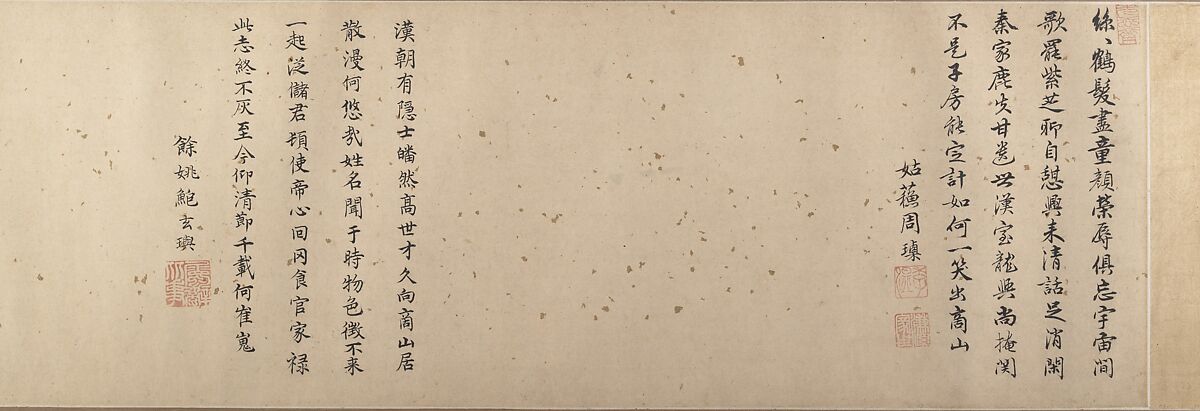 絲〻鶴髮盡童顏榮辱俱忘宇宙間
歌罷紫芝聊自憇興来清話足消閑
秦家鹿失甘遺世漢室龍興尚掩関
不是子房能定計如何一笑出商山
姑蘓周
漢朝有隠士皤然高世才久向商山居
散漫何悠哉姓名聞于時物色徴不来
一起泛儲君頓使帝心回冈食官家禄
此志終不灰至今仰清節千載何崔嵬
餘姚鮑玄璵